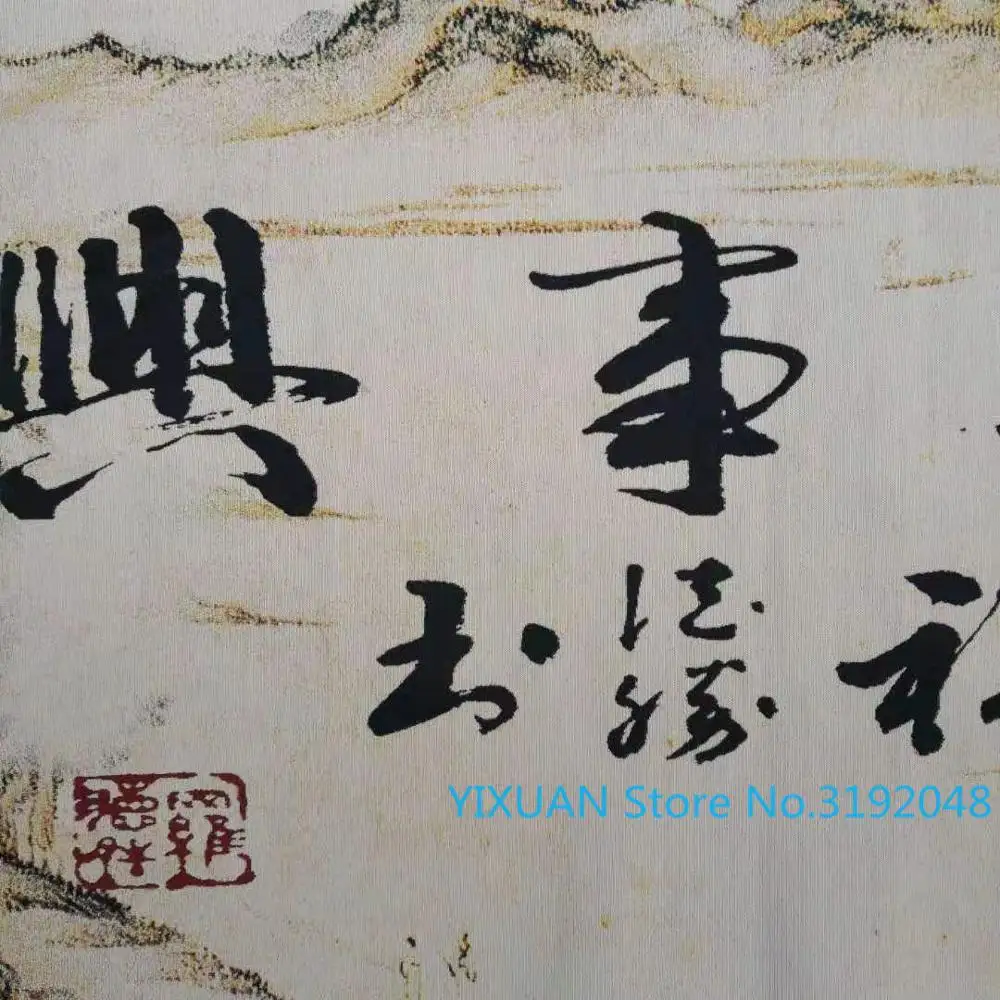 事興
德勝书
YIXUAN Store No.3192048